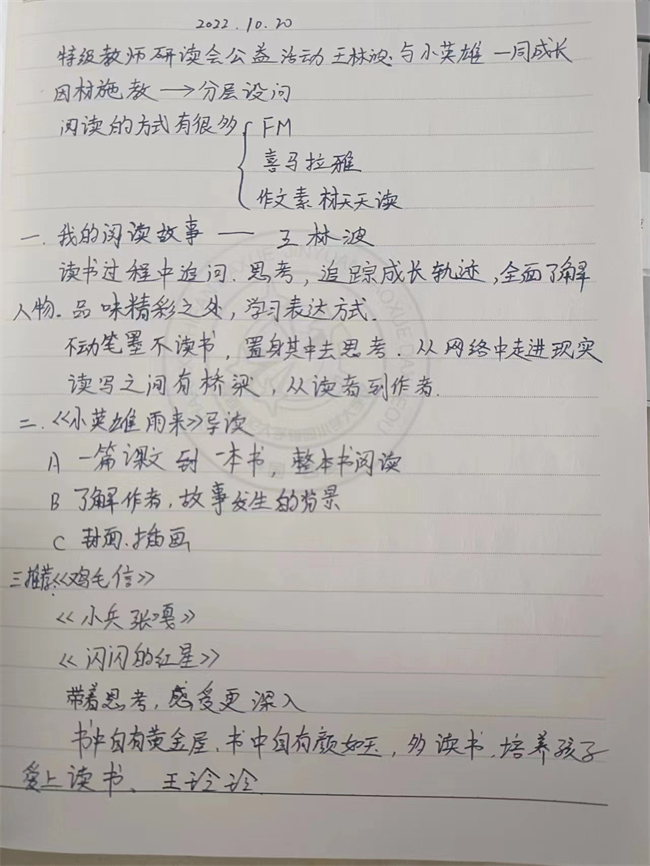 2022.10.20
特级教师研读会公益活动 王林波·与小英雄一同成长
因材施教→分层设问
阅读的方式有很多{FM
喜马拉雅
作文素材天天读
一.我的阅读故事——王林波
读书过程中追问.思考，追踪成长轨迹，全面了解
人物.品味精彩之处，学习表达方式.
不动笔墨不读书，置身其中去思考.从网络中走进现实
读写之间有桥梁，从读者到作者.
二.《小英雄雨来》导读
A 一篇课文到一本书，整本书阅读
B 了解作者，故事发生的背景
C 封面.插画
三推荐:《鸡毛信》
《小兵张嘎》
《闪闪的红星》
带着思考，感受更深入
书中自有黄金屋.书中自有颜如玉，多读书.培养孩子
爱上读书、王玲玲